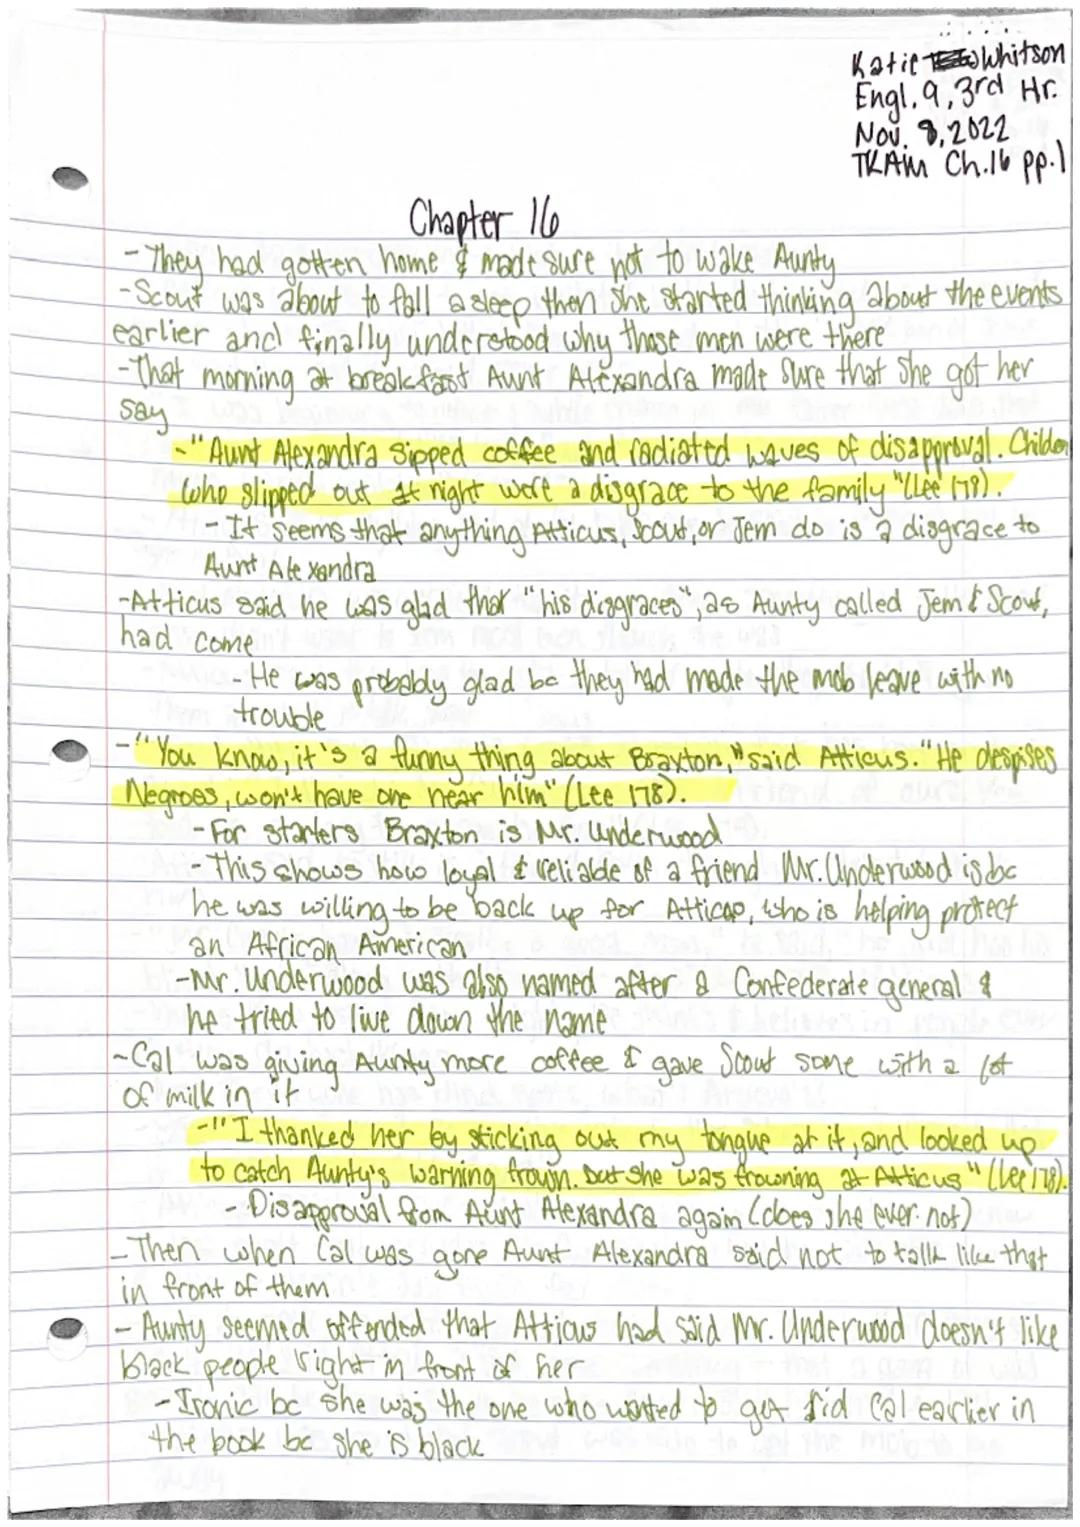 Katie Whitson
Engl. 9, 3rd Hr.
Nov. 8, 2022
TKAM Ch.16 pp.1
Chapter 16
- They had gotten home & made sure not to wake Aunty
- Scout was about to fall asleep then she started thinking about the events
earlier and finally understood why those men were there
- That morning at breakfast Aunt Alexandra made sure that she got her
say
- "Aunt Alexandra sipped coffee and radiated waves of disapproval. Children
who slipped out at night were a disgrace to the family" (Lee 178).
- It seems that anything Atticus, Scout, or Jem do is a disgrace to
Aunt Alexandra
- Atticus said he was glad that "his disgraces", as Aunty called Jem & Scout,
had come
- He was probably glad bc they had made the mob leave with no
trouble
- "You know, it's a funny thing about Braxton," said Atticus. "He despises
Negroes, won't have one near him" (Lee 178).
- For starters Braxton is Mr. Underwood
- This shows how loyal & reliable of a friend Mr. Underwood is bc
he was willing to be back up for Atticus, who is helping protect
an African American
- Mr. Underwood was also named after a Confederate general &
he tried to live down the name
- Cal was giving Aunty more coffee & gave Scout some with a lot
of milk in it
- "I thanked her by sticking out my tongue at it, and looked up
to catch Aunty's warning frown. But she was frowning at Atticus" (Lee 178).
- Disapproval from Aunt Alexandra again (does she ever not)
- Then when Cal was gone Aunt Alexandra said not to talk like that
in front of them
- Aunty seemed offended that Atticus had said Mr. Underwood doesn't like
black people right in front of her
- Ironic bc she was the one who wanted to get rid Cal earlier in
the book bc she is black